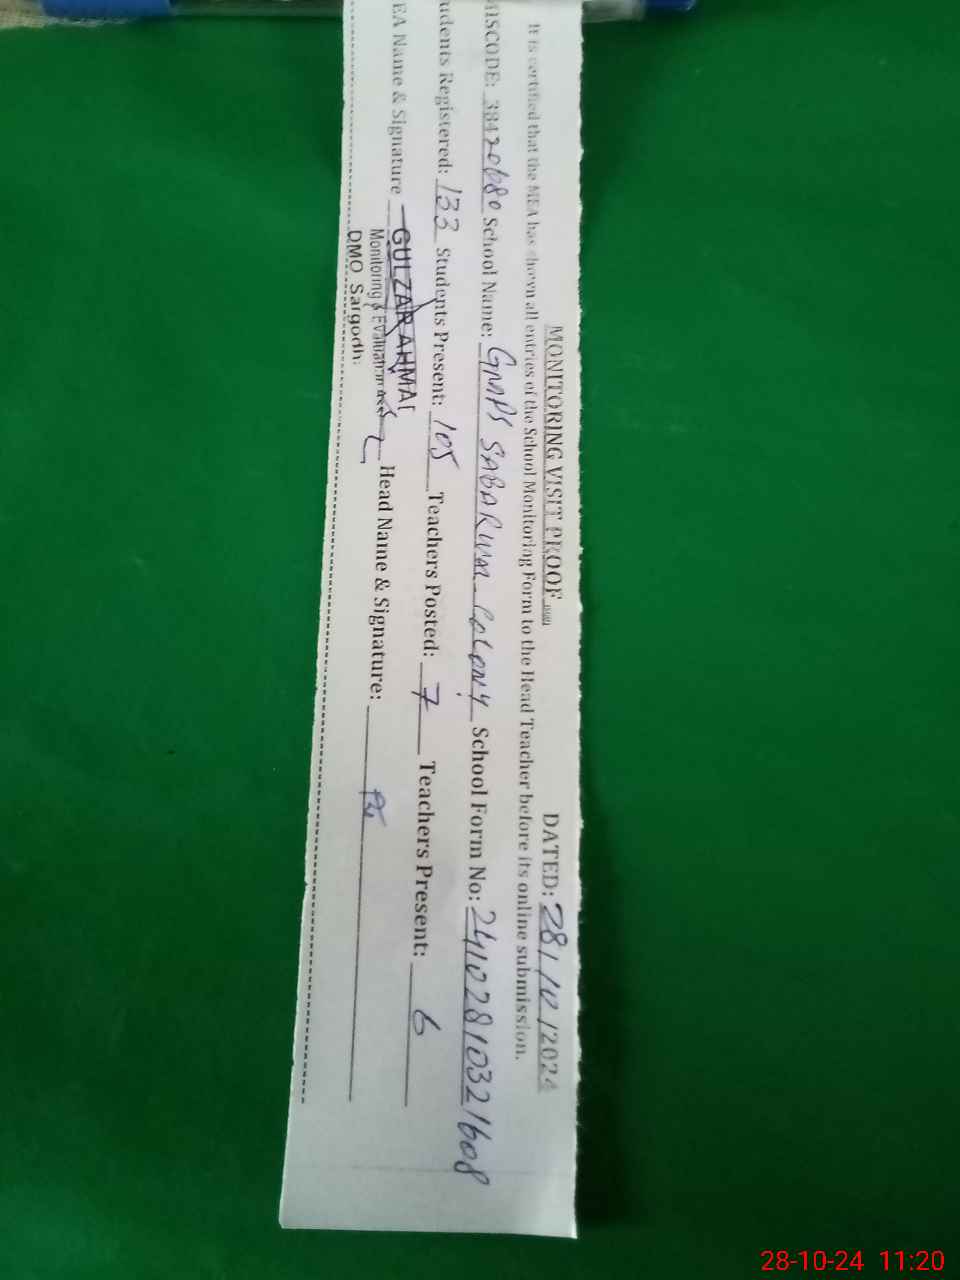 MONITORING VISIT PROOF
DATED: 28/10/2024
It is certified that the MEA has shown all entries of the School Monitoring Form to the Head Teacher before its online submission.
MISCODE: 38420680 School Name: GMPS SABARWAL COLONY School Form No: 24102810321608
udents Registered: 133 Students Present: 105 Teachers Posted: 7 Teachers Present: 6
EA Name & Signature GULZAR AHMAD Head Name & Signature:
Monitoring & Evaluation
DMO Sargodh
28-10-24 11:20